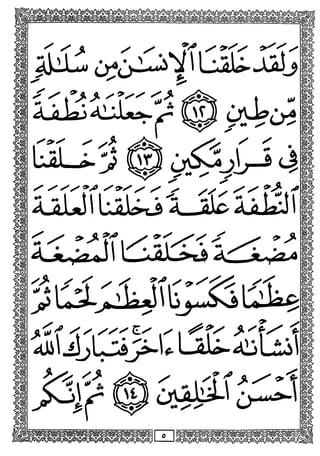 وَلَقَدْ خَلَقْنَا ٱلْإِنسَٰنَ مِن سُلَٰلَةٍ
مِّن طِينٍ ١٢ ثُمَّ جَعَلْنَٰهُ نُطْفَةً
فِى قَرَارٍ مَّكِينٍ ١٣ ثُمَّ خَلَقْنَا
ٱلنُّطْفَةَ عَلَقَةً فَخَلَقْنَا ٱلْعَلَقَةَ
مُضْغَةً فَخَلَقْنَا ٱلْمُضْغَةَ
عِظَٰمًا فَكَسَوْنَا ٱلْعِظَٰمَ لَحْمًا ثُمَّ
أَنشَأْنَٰهُ خَلْقًا ءَاخَرَ ۚ فَتَبَارَكَ ٱللَّهُ
أَحْسَنُ ٱلْخَٰلِقِينَ ١٤ ثُمَّ إِنَّكُم
٥